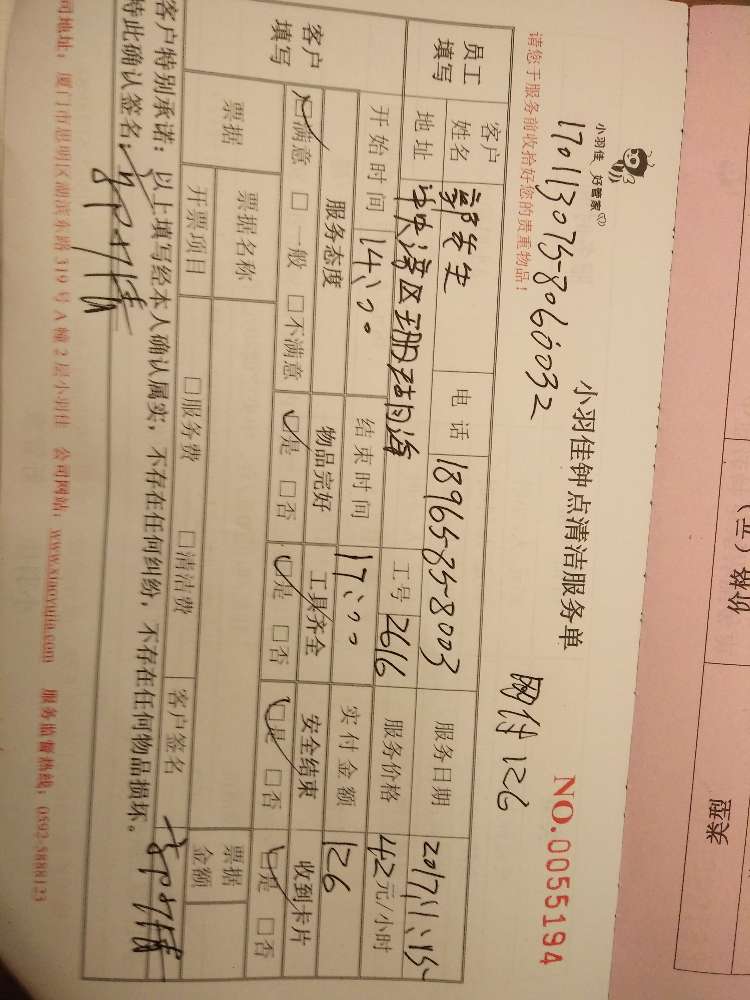 小羽佳 好管家
小羽佳钟点清洁服务单
NO.0055194
请您于服务前收拾好您的贵重物品！
网付 126
员工填写
客户姓名
电话
18965858003
服务日期
2017.11.15
地址
工号
2616
服务价格
42元/小时
开始时间
14:00
结束时间
17:00
实付金额
126
客户填写
服务态度
物品完好
工具齐全
安全结束
收到卡片
☑满意 □一般 □不满意
☑是 □否
☑是 □否
☑是 □否
☑是 □否
票据
票据名称
票据金额
开票项目
□服务费 □清洁费
客户签名
客户特别承诺：以上填写经本人确认属实，不存在任何纠纷，不存在任何物品损坏。
特此确认签名：
司地址：厦门市思明区湖滨东路319号A幢2层小羽佳 公司网站：www.xiaoyujia.com 服务监督热线：0592-5888123
(吉)
类型